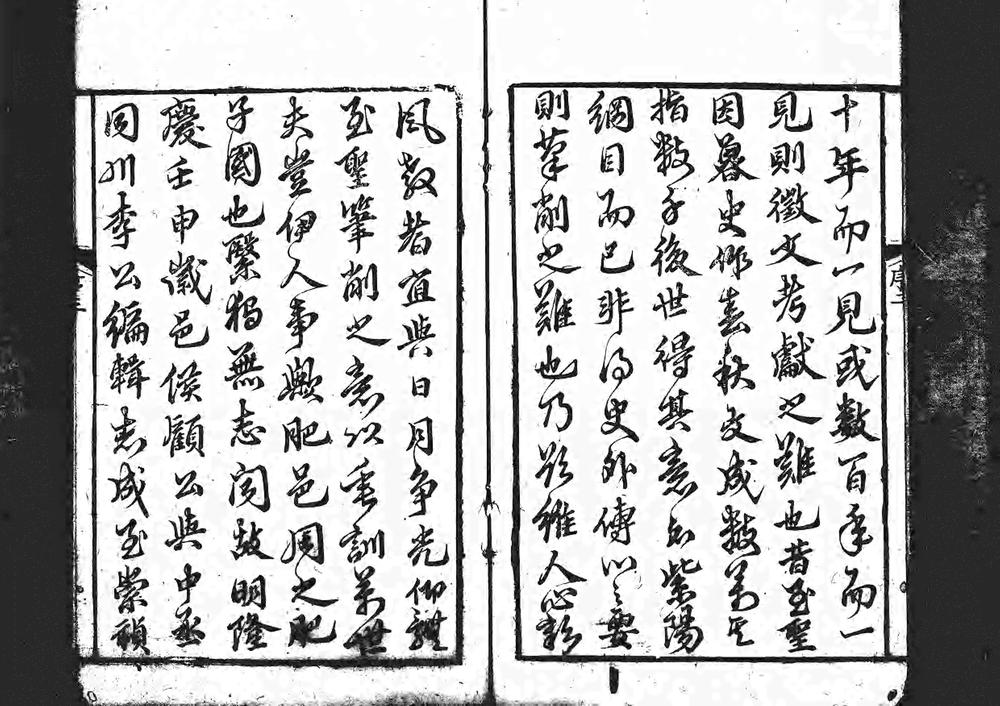 十年而一見或數百年而一
見則徵文考獻之難也昔至聖
因魯史作春秋文成數萬其
指數千後世得其意者紫陽
綱目而已非得史外傳心之要
則筆削之難也乃欲維人心彰
風教者直與日月爭光仰體
至聖筆削之意以垂訓萬世
夫豈伊人事歟肥邑周之肥
子國也繫獨無志閱故明隆
慶壬申歲邑侯顧公與中丞
同川李公編輯志成至崇禎
序 三